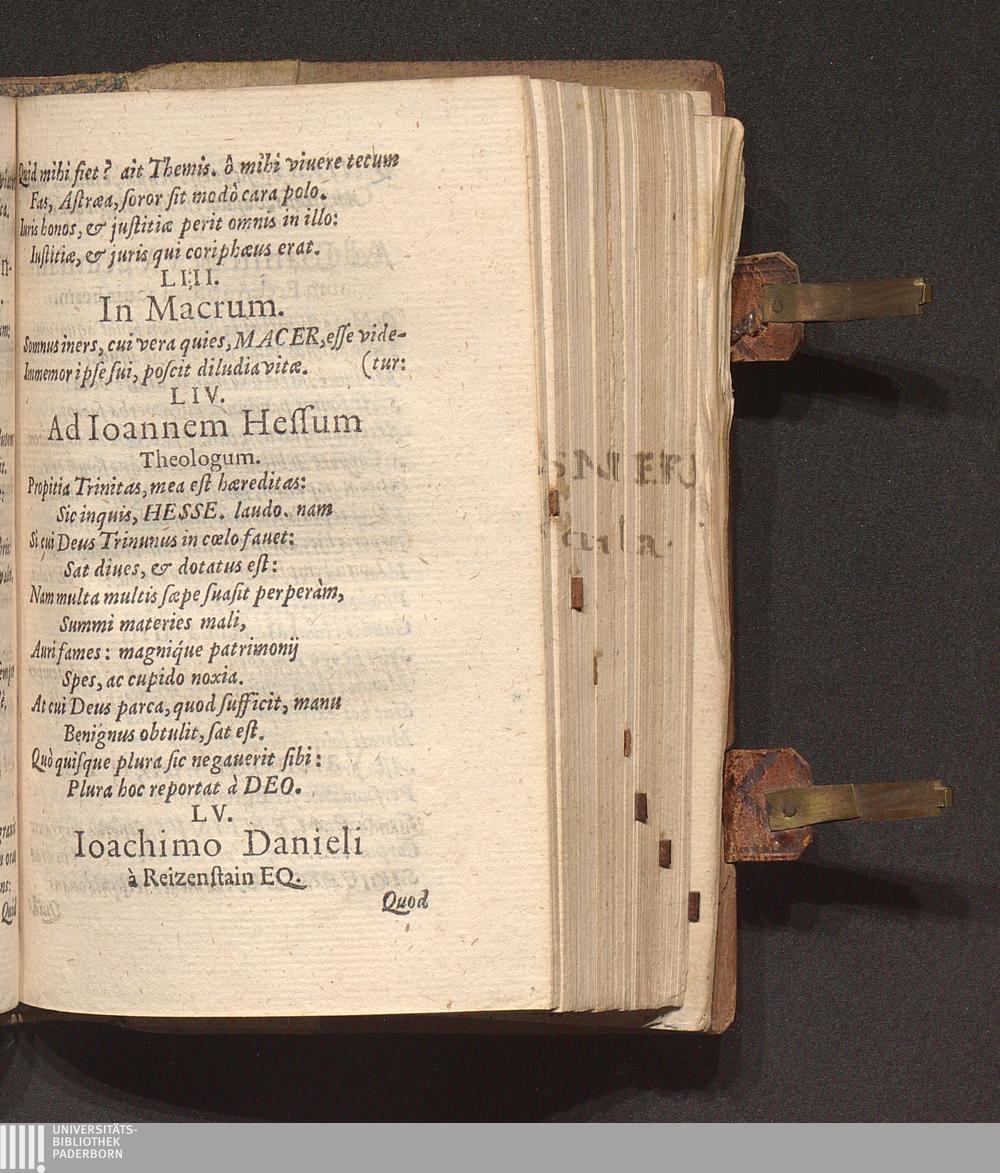 Quid mihi fiet? ait Themis. ô mihi viuere tecum
Fas, Astræa, soror sit modò cara polo.
Iuris honos, & justitiæ perit omnis in illo:
Iustitiæ, & juris qui coriphæus erat.
LIII.
In Macrum.
Somnus iners, cui vera quies, MACER, esse vide-
Immemor ipse sui, poscit diludia vitæ. (tur:
LIV.
Ad Ioannem Hessum
Theologum.
Propitia Trinitas, mea est hæreditas:
Sic inquis, HESSE. laudo. nam
Si cui Deus Trinunus in cœlo fauet:
Sat diues, & dotatus est:
Nam multa multis sæpe suasit perperàm,
Summi materies mali,
Auri fames: magnique patrimonij
Spes, ac cupido noxia.
At cui Deus parca, quod sufficit, manu
Benignus obtulit, sat est.
Quò quisque plura sic negauerit sibi:
Plura hoc reportat à DEO.
LV.
Ioachimo Danieli
à Reizenstain EQ.
Quod
UNIVERSITÄTS-
BIBLIOTHEK
PADERBORN